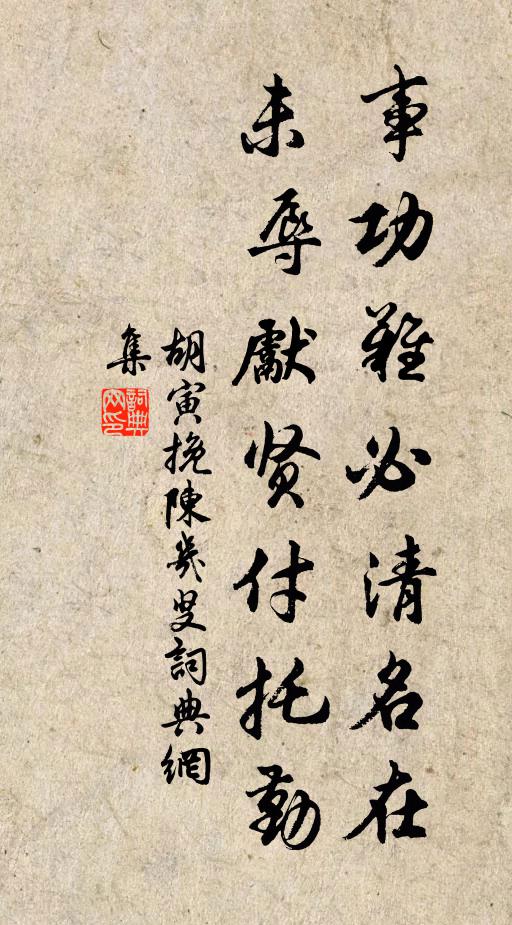 事功難必清名在
未辱獻贤付托勤
胡寅挽陳幾叟詞典網
集
詞典网印